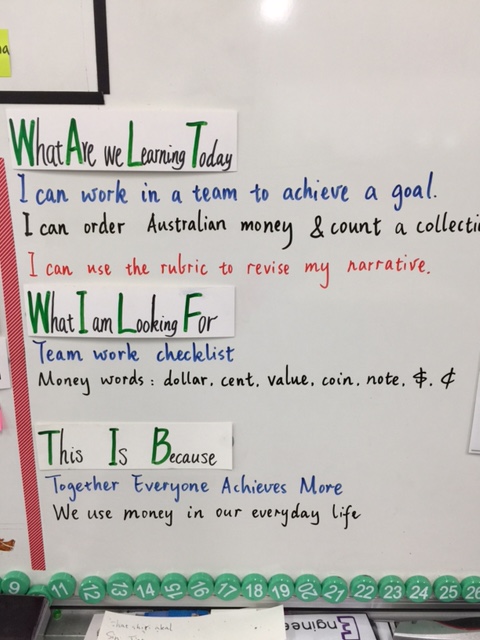 What Are we Learning Today
I can work in a team to achieve a goal.
I can order Australian money & count a collecti
I can use the rubric to revise my narrative.
What I am Looking For
Team work checklist
Money words : dollar, cent, value, coin, note, $, ¢
This Is Because
Together Everyone Achieves More
We use money in our everyday life
9 11 12 13 14 15 16 17 18 19 20 21 22 23 24 25 26